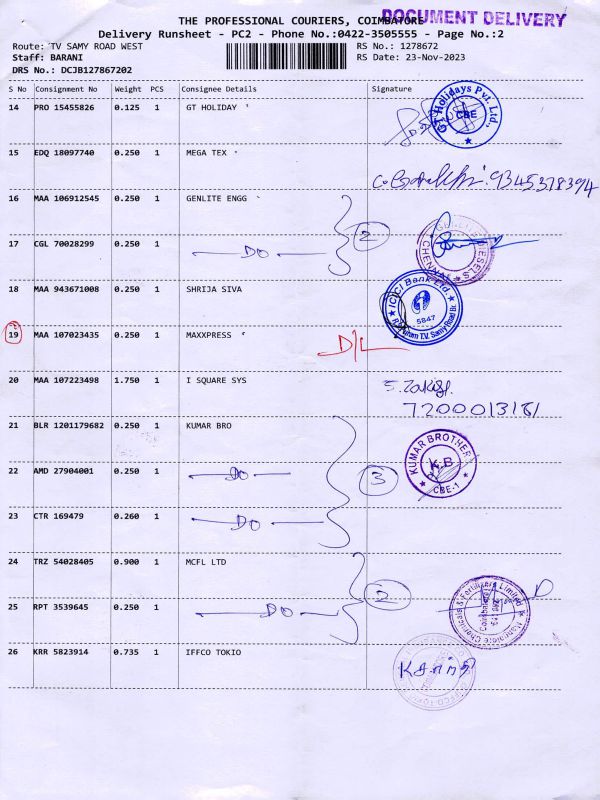 THE PROFESSIONAL COURIERS, COIMBATORE
DOCUMENT DELIVERY
Delivery Runsheet - PC2 - Phone No.:0422-3505555 - Page No.:2
Route: TV SAMY ROAD WEST
RS No.: 1278672
Staff: BARANI
RS Date: 23-Nov-2023
DRS No.: DCJB127867202
S No Consignment No Weight PCS Consignee Details Signature
14 PRO 15455826 0.125 1 GT HOLIDAY
GT Holidays Pvt. Ltd., CBE
15 EDQ 18097740 0.250 1 MEGA TEX
9345378394
16 MAA 106912545 0.250 1 GENLITE ENGG
2
17 CGL 70028299 0.250 1 DO
DIESELS CHENNAI
18 MAA 943671008 0.250 1 SHRIJA SIVA
ICICI Bank Ltd
5847
T.V. Samy Road Br.
19 MAA 107023435 0.250 1 MAXXPRESS
D/L
20 MAA 107223498 1.750 1 I SQUARE SYS
21 BLR 1201179682 0.250 1 KUMAR BRO
KUMAR BROTHER
K.B
CBE-1
22 AMD 27904001 0.250 1 DO
3
23 CTR 169479 0.260 1 DO
24 TRZ 54028405 0.900 1 MCFL LTD
2
Mangalore Chemicals & Fertilizers Limited
Coimbatore
25 RPT 3539645 0.250 1 DO
26 KRR 5823914 0.735 1 IFFCO TOKIO